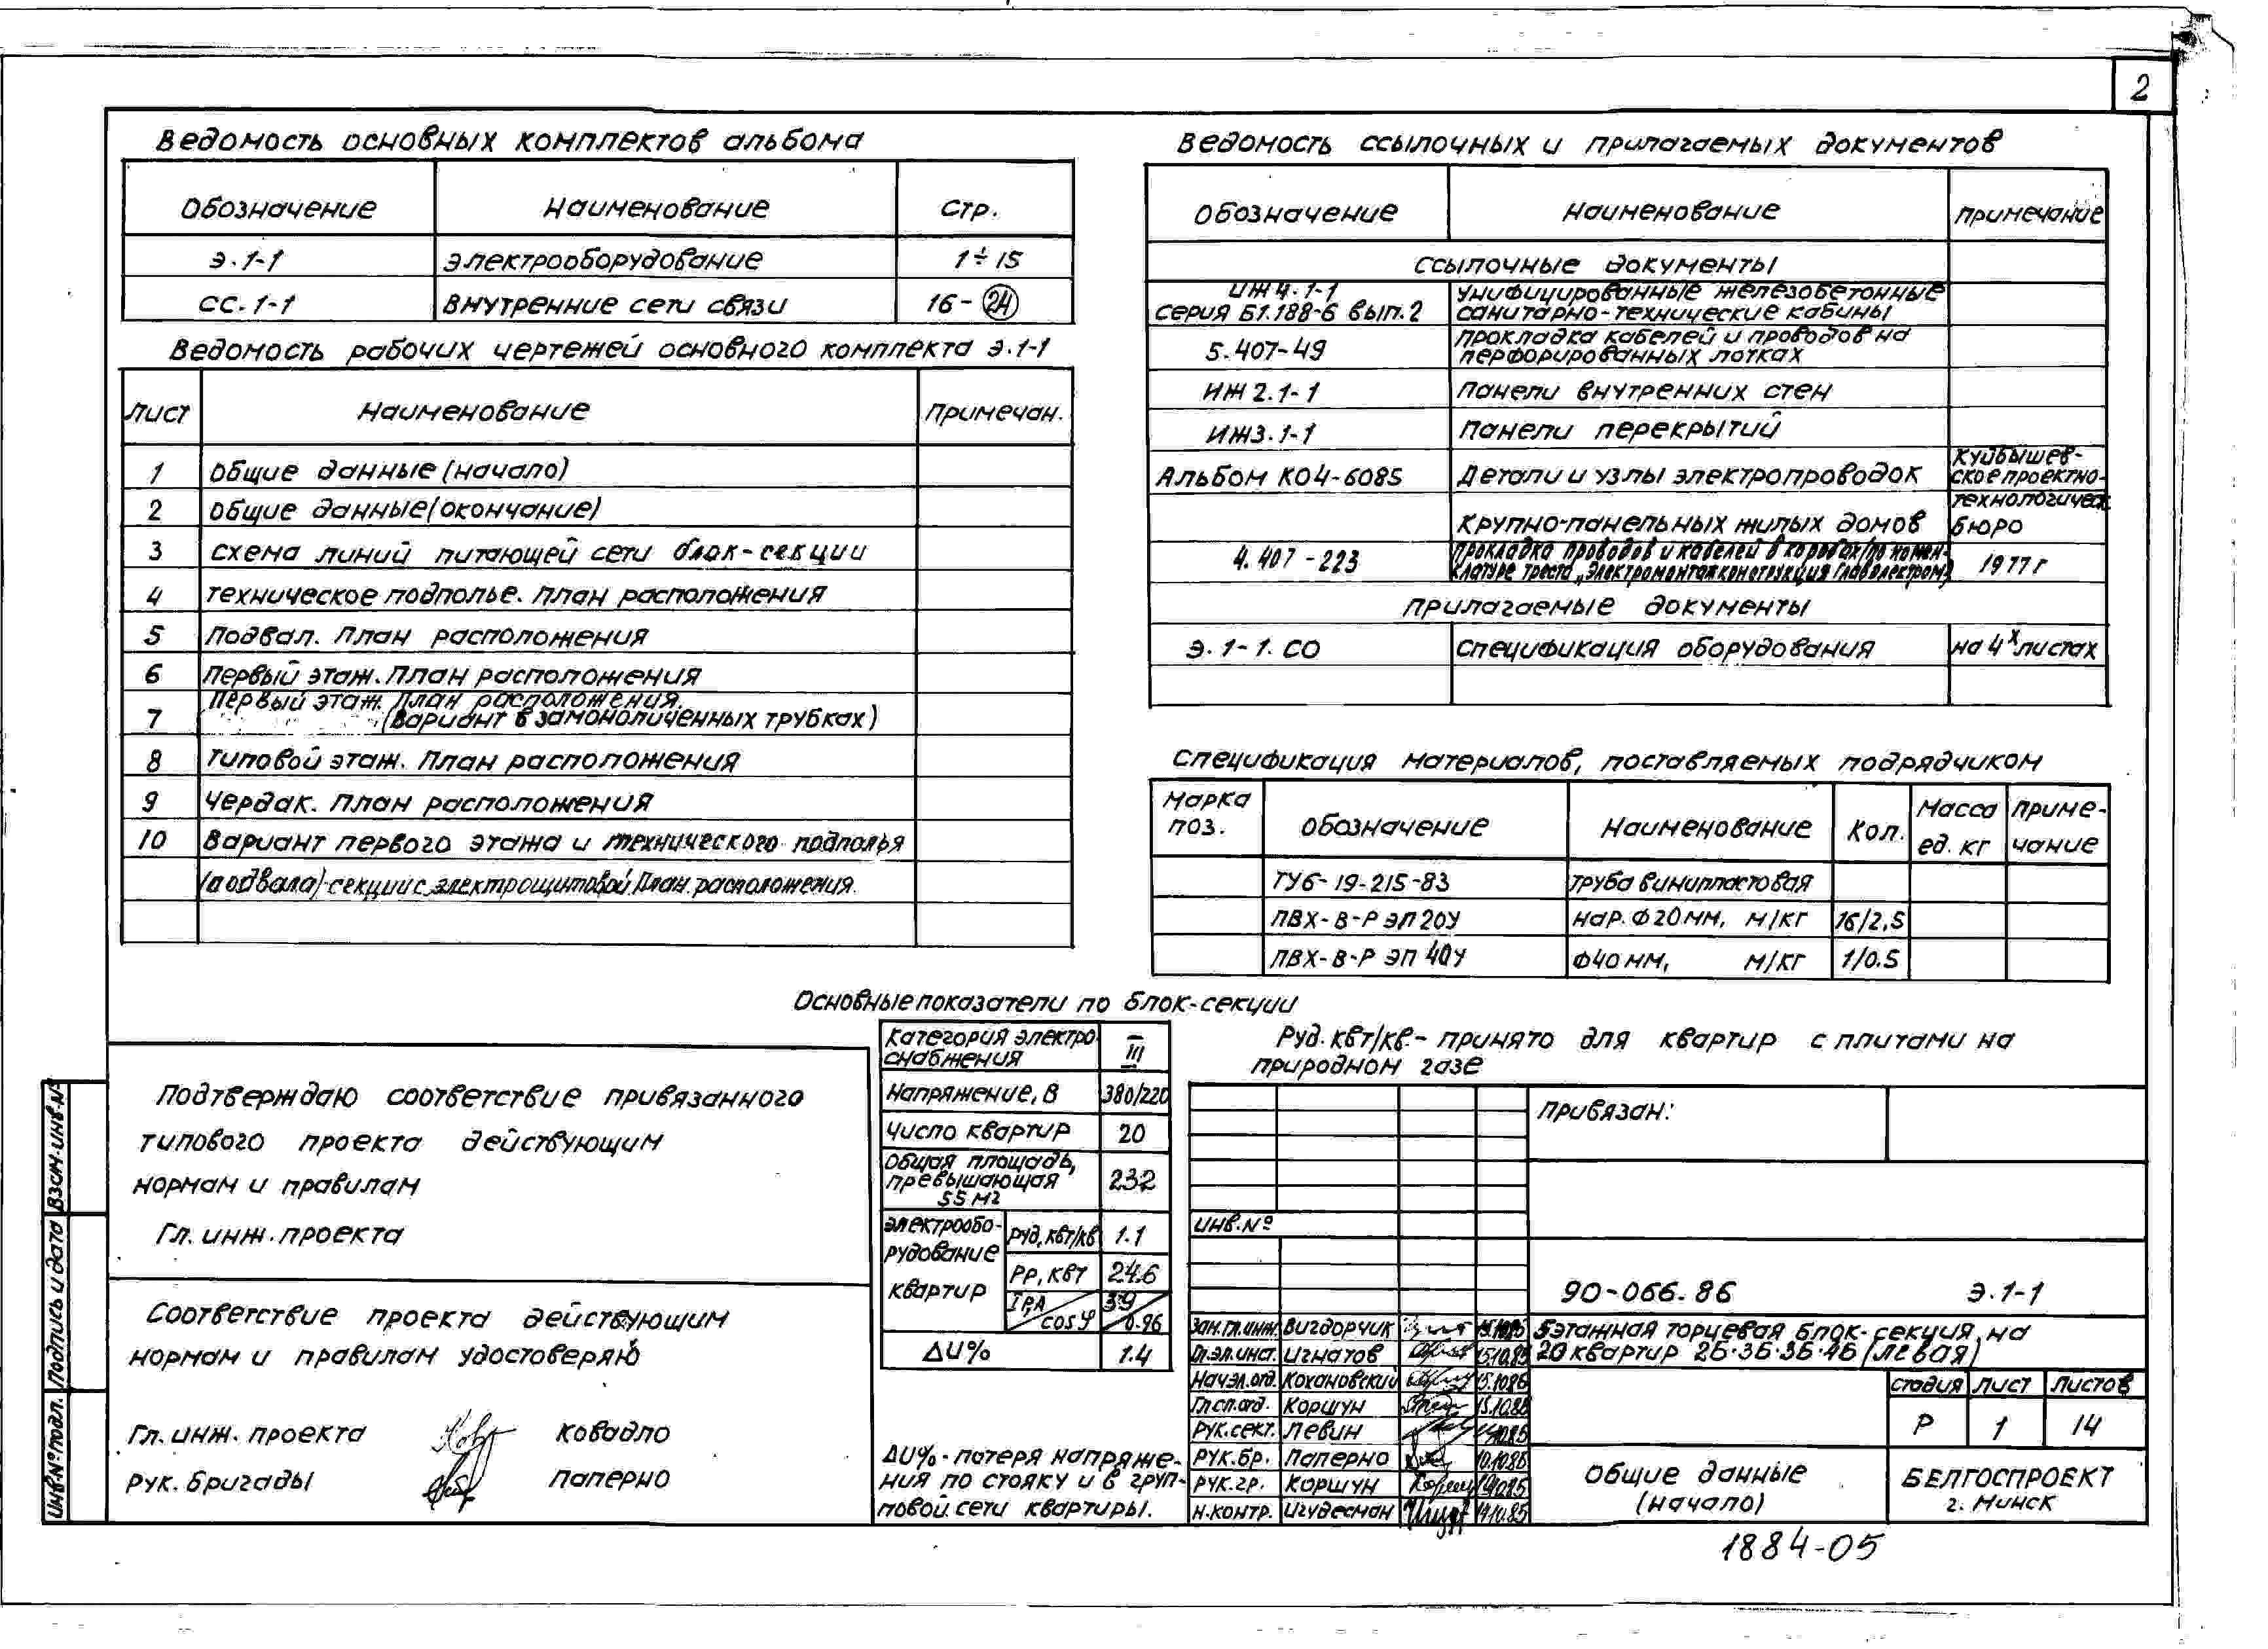 2
Ведомость основных комплектов альбома
Обозначение Наименование стр.
Э.1-1 Электрооборудование 1÷15
СС.1-1 Внутренние сети связи 16-24
Ведомость рабочих чертежей основного комплекта Э.1-1
Лист Наименование Примечан.
1 Общие данные (начало)
2 Общие данные (окончание)
3 Схема линий питающей сети блок-секции
4 Техническое подполье. План расположения
5 Подвал. План расположения
6 Первый этаж. План расположения
7 Первый этаж. План расположения.
(Вариант в замоноличенных трубках)
8 Типовой этаж. План расположения
9 Чердак. План расположения
10 Вариант первого этажа и технического подполья
(подвала) секции с электрощитовой. План расположения.
Ведомость ссылочных и прилагаемых документов
Обозначение Наименование Примечание
Ссылочные документы
ИЖ4.1-1
серия Б1.188-6 вып.2
Унифицированные железобетонные
санитарно-технические кабины
5.407-49
Прокладка кабелей и проводов на
перфорированных лотках
ИЖ2.1-1 Панели внутренних стен
ИЖ3.1-1 Панели перекрытий
Альбом К04-6085 Детали и узлы электропроводок
крупно-панельных жилых домов
Куйбышев-
ское проектно-
технологичес.
бюро
4.407-223
Прокладка проводов и кабелей в коробах/по номен-
клатуре треста „Электромонтажконструкция Главэлектром.)
1977г
Прилагаемые документы
Э.1-1.СО Спецификация оборудования на 4х листах
Спецификация материалов, поставляемых подрядчиком
Марка
поз.
Обозначение Наименование Кол.
Масса
ед. кг
Приме-
чание
ТУ6-19-215-83 Труба винипластовая
ПВХ-В-Р ЭП 20У нар. Ф20мм, м/кг 16/2,5
ПВХ-В-Р ЭП 40У Ф40мм, м/кг 1/0.5
Основные показатели по блок-секции
Категория электро-
снабжения
III
Напряжение, В 380/220
Число квартир 20
Общая площадь,
превышающая
55м2
232
Электрообо-
рудование
квартир
Руд, квт/кв 1.1
Рр, квт 24.6
IрА 39
cosφ 0.96
ΔU% 1.4
Руд. квт/кв.- принято для квартир с плитами на
природном газе
ΔU%- потеря напряже-
ния по стояку и в груп-
повой сети квартиры.
Подтверждаю соответствие привязанного
типового проекта действующим
нормам и правилам
Гл. инж. проекта
Соответствие проекта действующим
нормам и правилам удостоверяю
Гл. инж. проекта Ковадло
Рук. бригады Паперно
Взам. инв.№
Подпись и дата
Инв.№ подл.
Привязан:
Инв.№
90-066.86 Э.1-1
Зам.гл.инж. Вигдорчик 15.10.85
Гл.эл.инст. Игнатов 15.10.85
Нач.эл.отд. Кохановский 15.10.86
Гл.сп.отд. Коршун 15.10.85
Рук.сект. Левин
Рук.бр. Паперно
Рук.гр. Коршун
Н.контр. Игудесман 14.10.85
5этажная торцевая блок-секция на
20 квартир 2Б·3Б·3Б·4Б (левая)
стадия лист листов
Р 1 14
Общие данные
(начало)
БЕЛГОСПРОЕКТ
г. Минск
1884-05